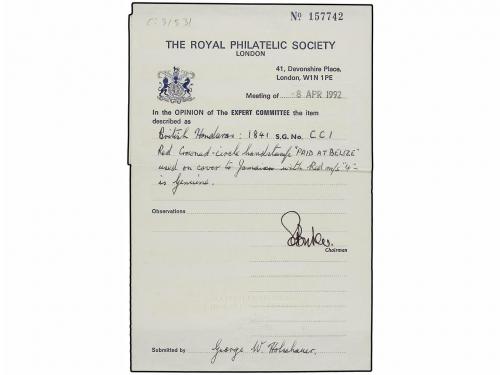 C:31531
Nº 157742
THE ROYAL PHILATELIC SOCIETY
LONDON
41, Devonshire Place,
London, W1N 1PE
Meeting of -8 APR 1992
In the OPINION of The EXPERT COMMITTEE the item
described as
British Honduras: 1841 S.G. No. CC1
Red Crowned-circle handstamp "PAID AT BELIZE"
used on cover to Jamaica with Red m/s "4"
is genuine.
Observations
Chairman
Submitted by George W. Holschauer.